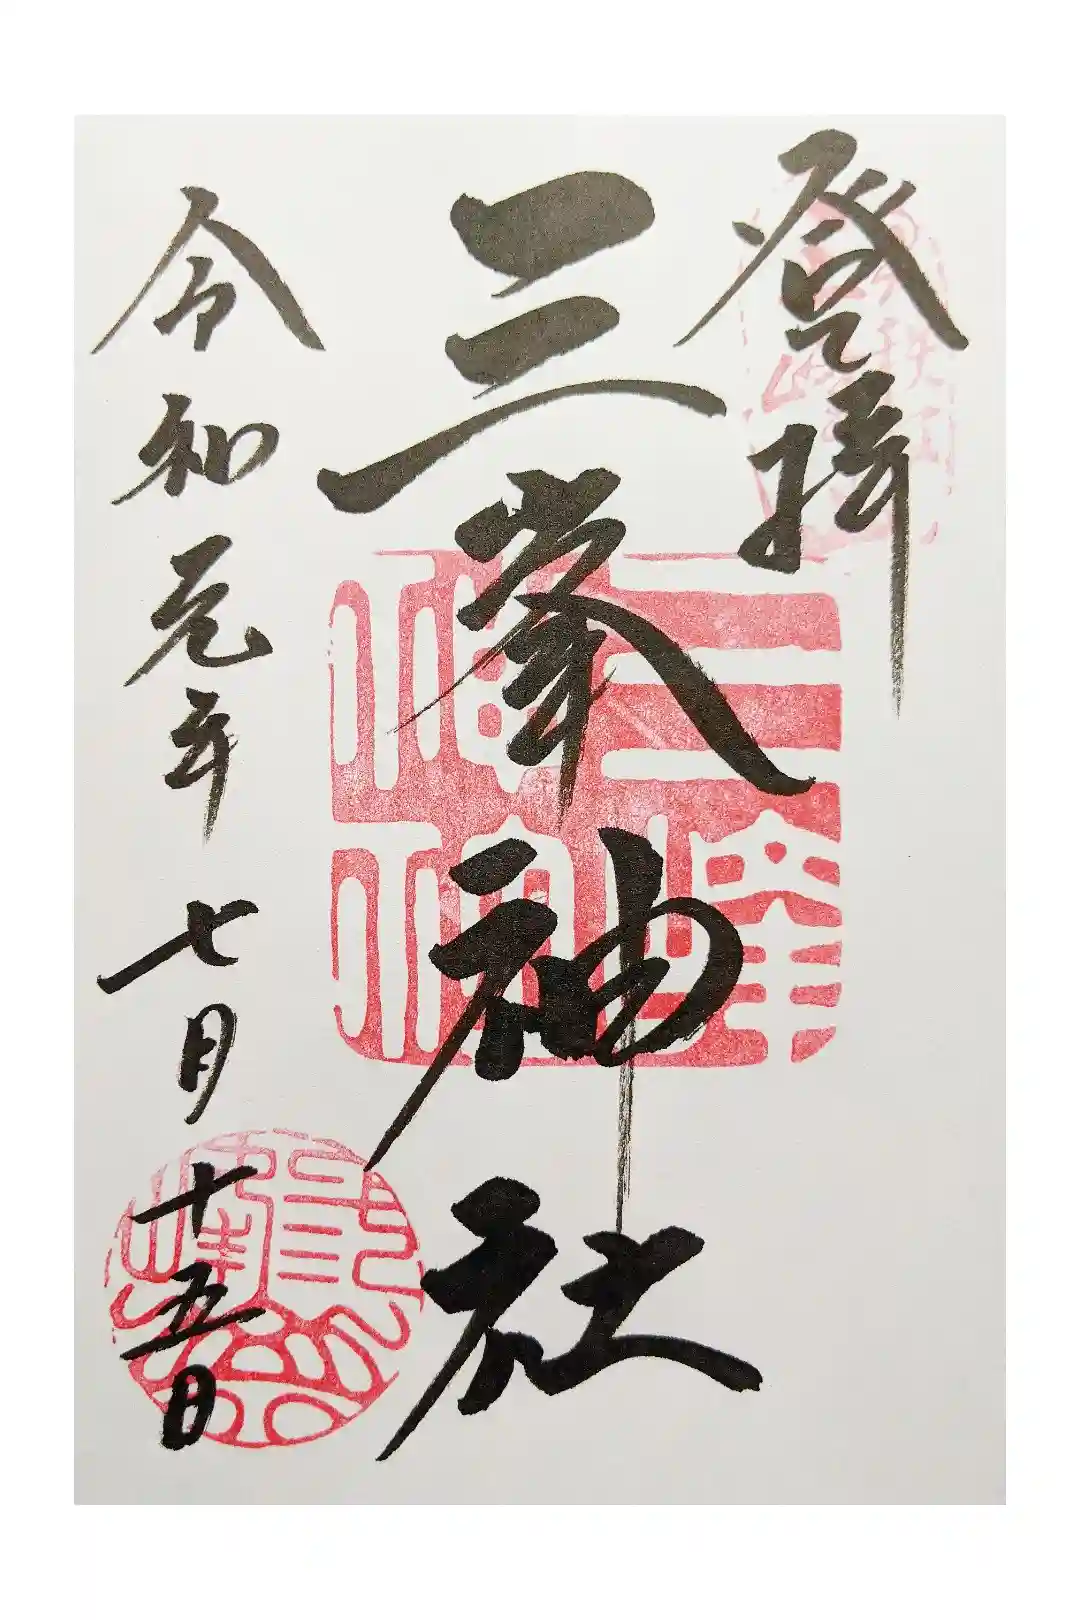 登拝
三峯神社
令和元年七月十五日
三峰神社